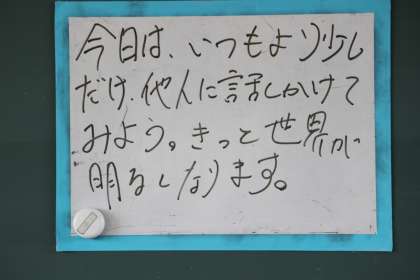 今日は、いつもより少し
だけ、他人に話しかけて
みよう。きっと世界が
明るくなります。